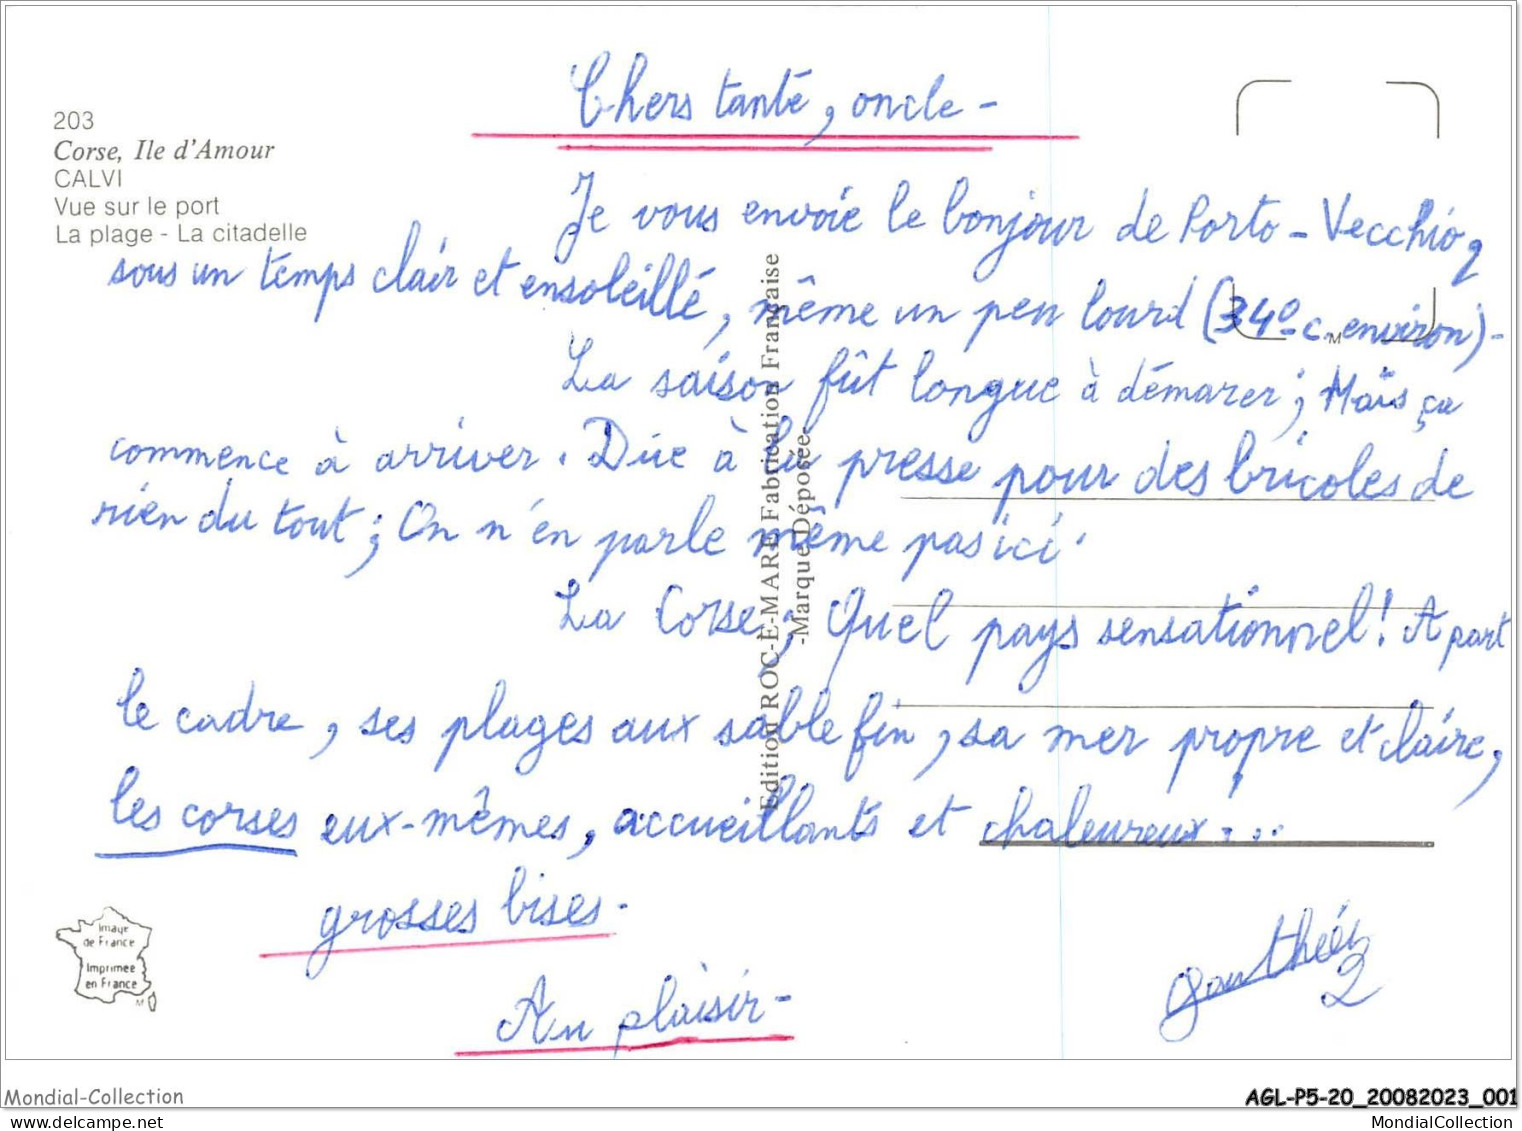 Chers tante, oncle -
203
Corse, Ile d'Amour
CALVI
Vue sur le port
La plage - La citadelle
Je vous envoie le bonjour de Porto - Vecchio,
sous un temps clair et ensoleillé, même un peu lourd (34°c. environ) -
La saison fût longue à démarer; Mais ça
commence à arriver. Dûe à la presse pour des bricoles de
rien du tout; On n'en parle même pas ici.
La Corse; Quel pays sensationnel! A part
le cadre, ses plages aux sable fin, sa mer propre et claire,
les corses eux-mêmes, accueillants et chaleureux...
grosses bises -
Au plaisir -
Edition ROC-E-MARE Fabrication Française
-Marque Déposée-
M
Image
de France
Imprimée
en France
M
Mondial-Collection
AGL-P5-20_20082023_001
www.delcampe.net
MondialCollection